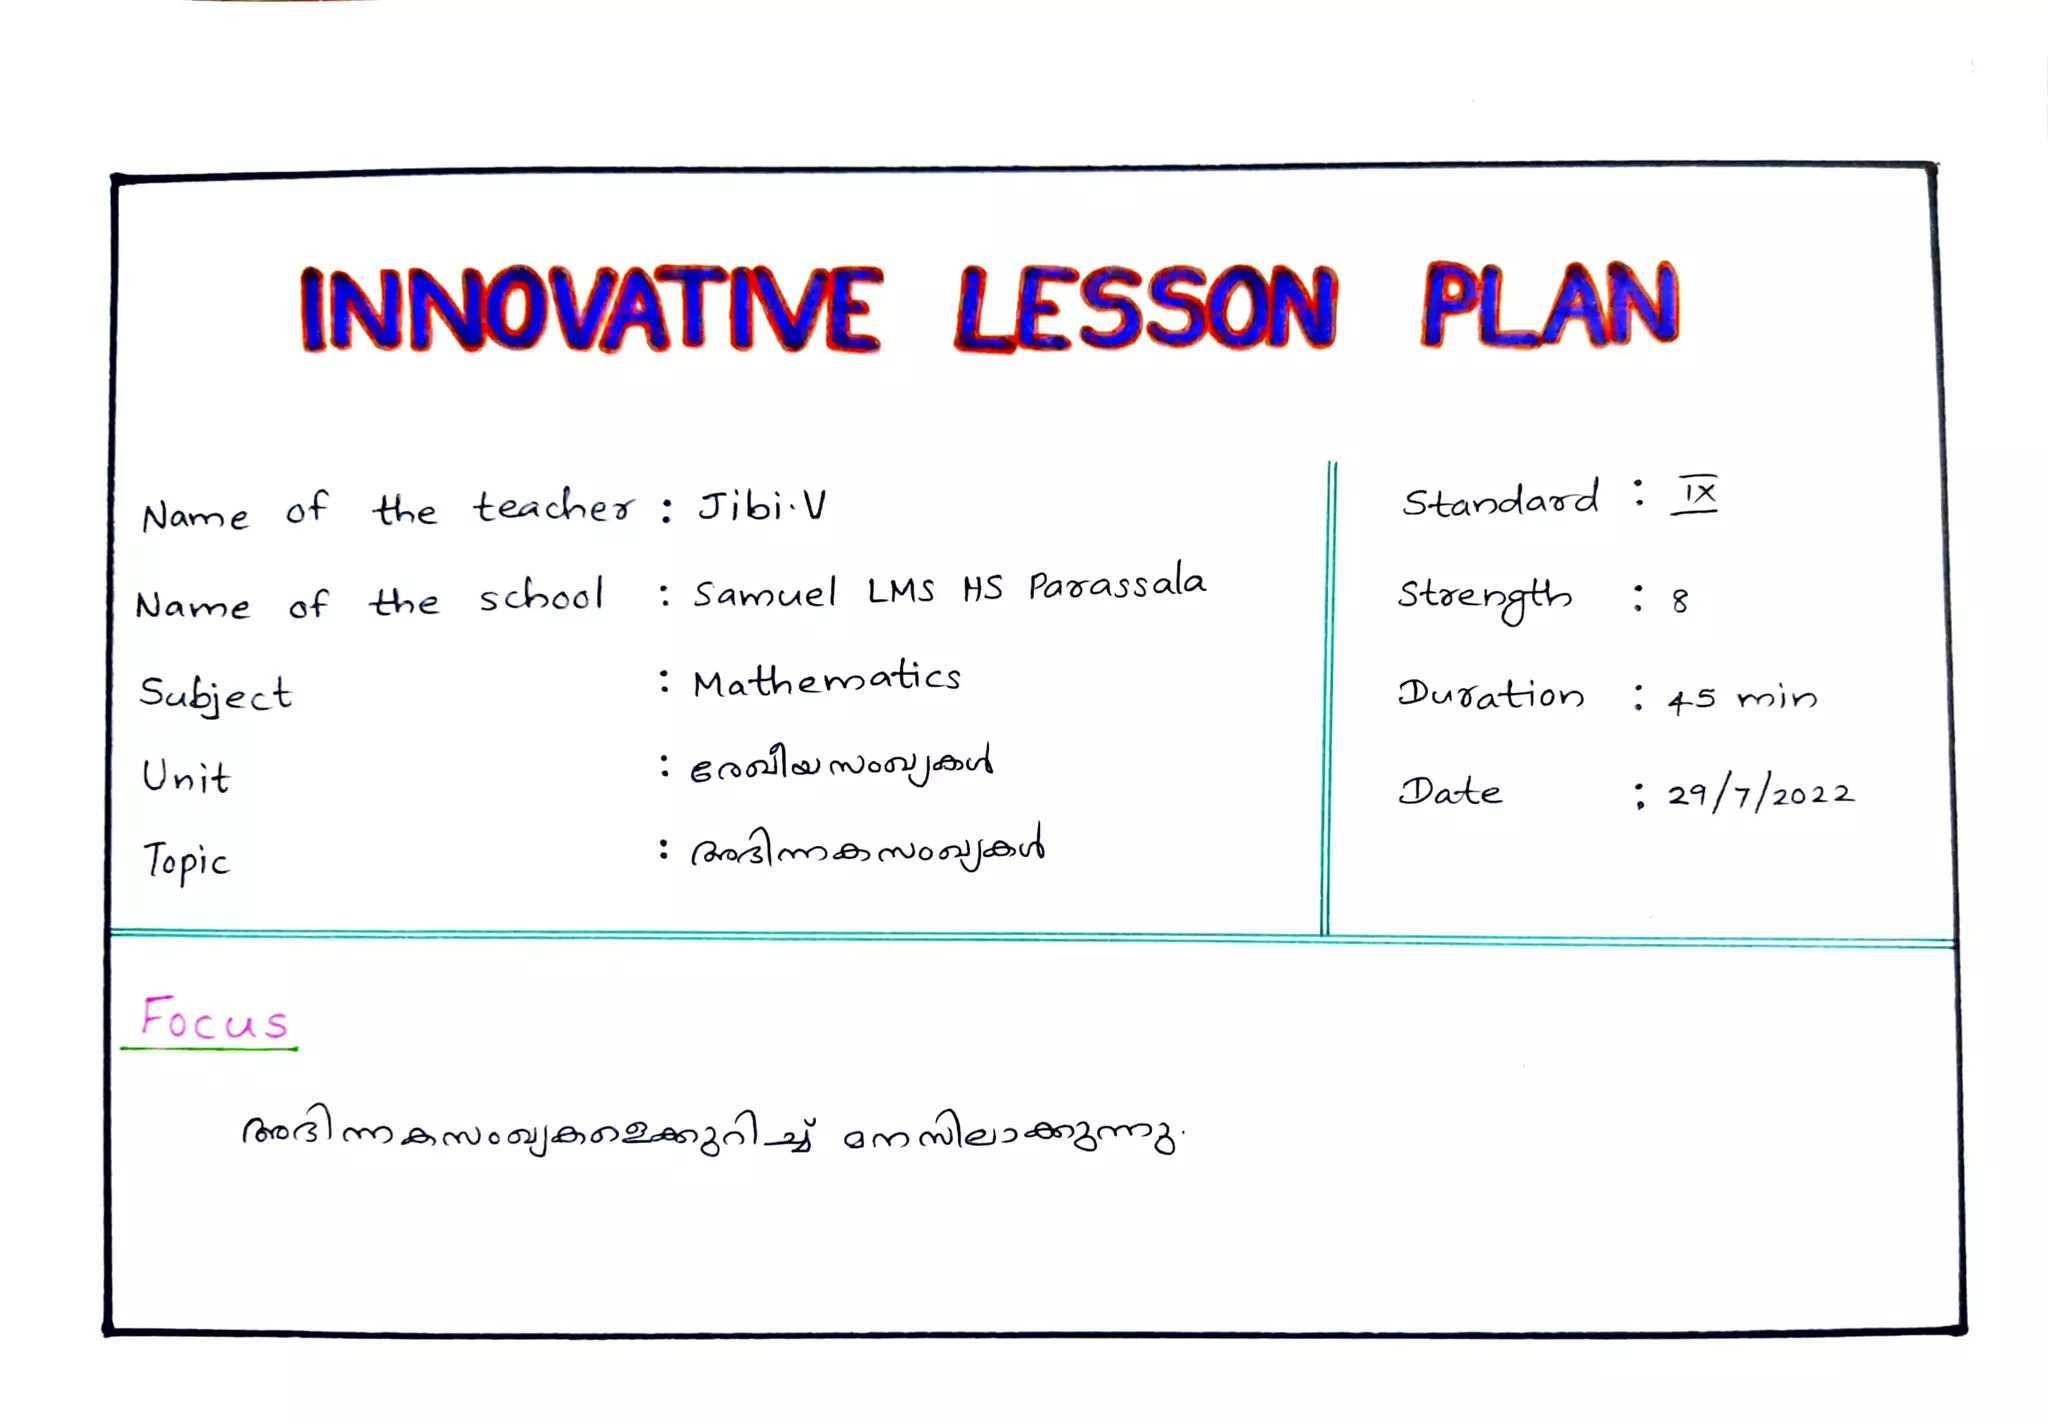 INNOVATIVE LESSON PLAN
Name of the teacher : Jibi.V
Name of the school : Samuel LMS HS Parassala
Subject : Mathematics
Unit : രേഖീയസംഖ്യകൾ
Topic : അഭിന്നകസംഖ്യകൾ
Standard : IX
Strength : 8
Duration : 45 min
Date : 29/7/2022
Focus
അഭിന്നകസംഖ്യകളെക്കുറിച്ച് മനസിലാക്കുന്നു.